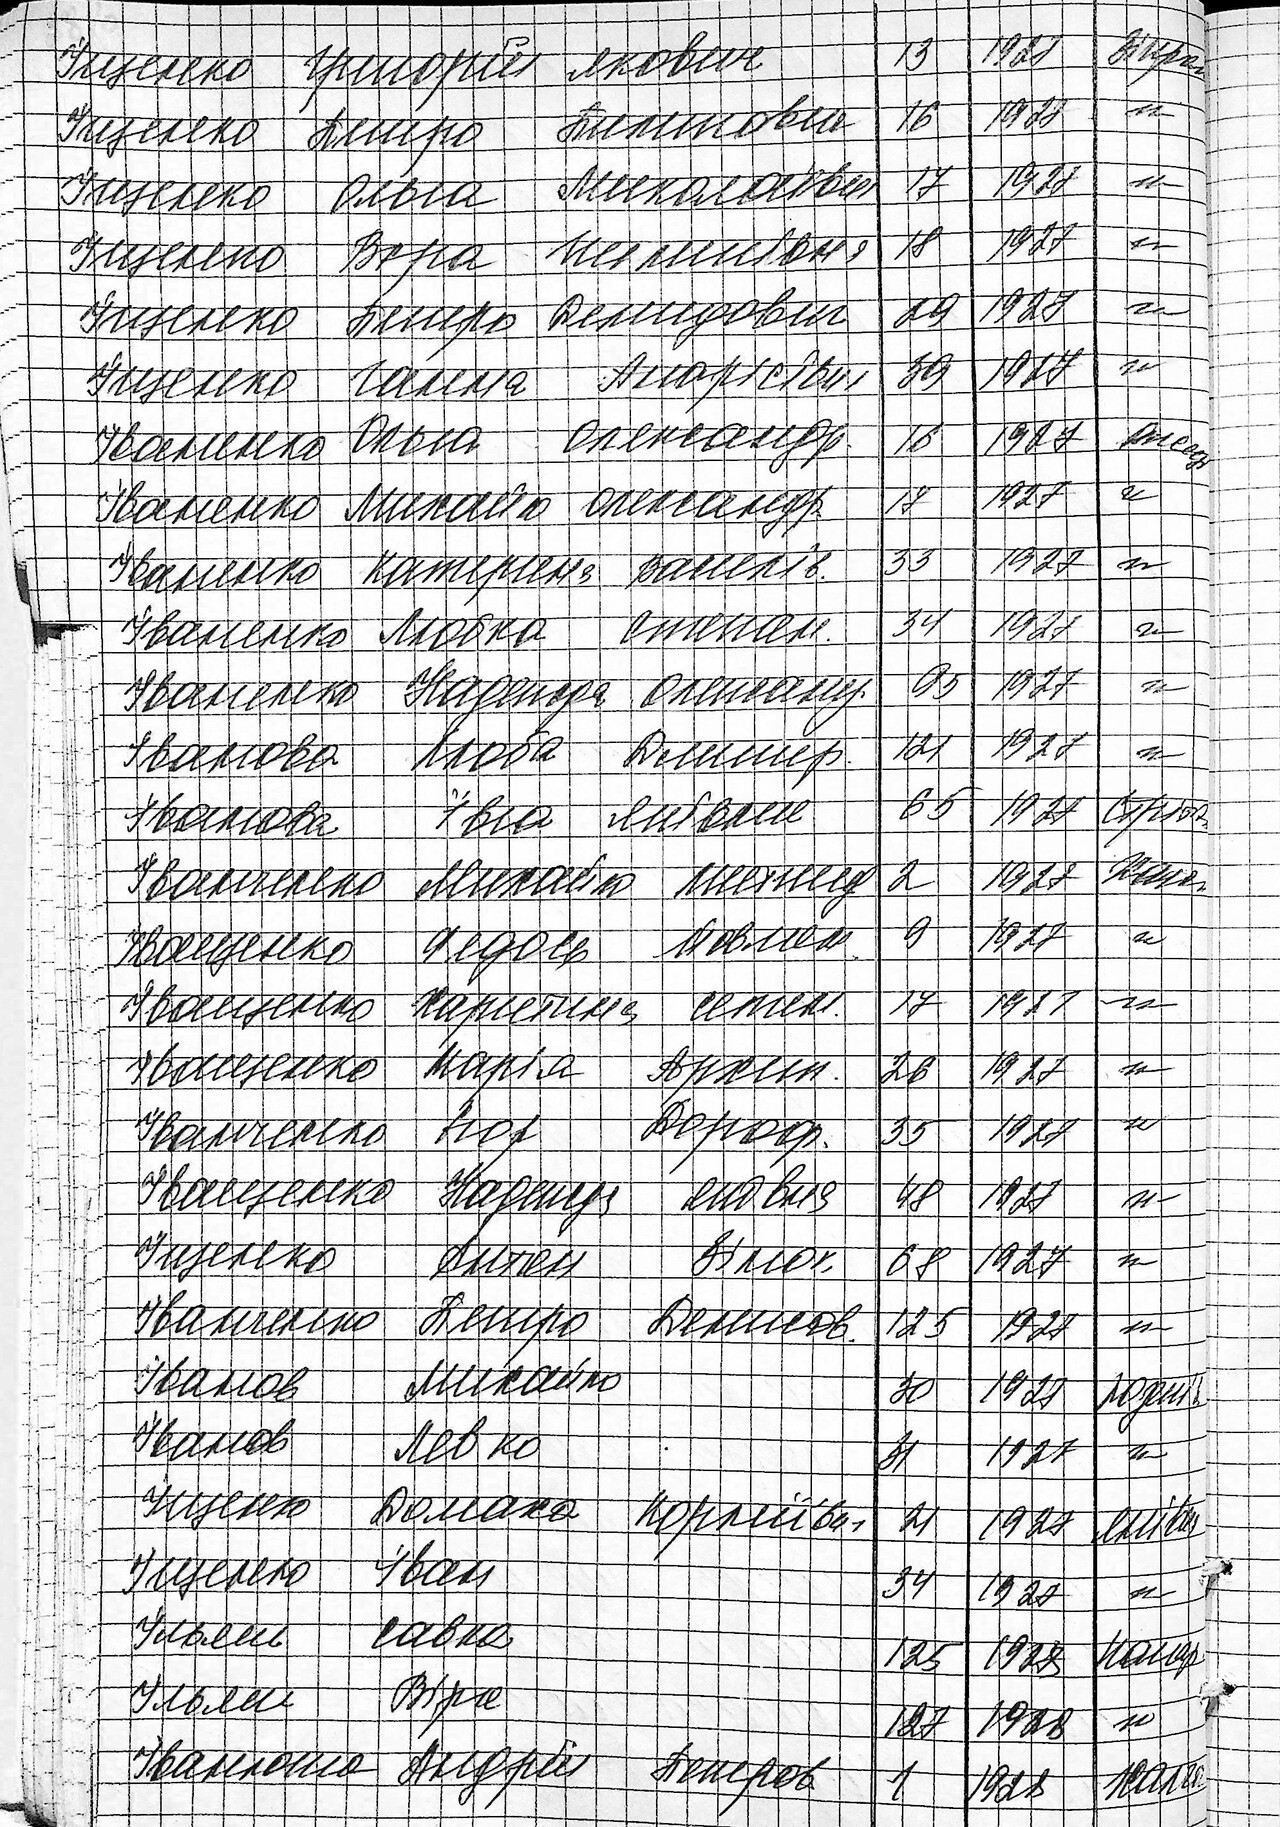 Іщенко Григорій Якович 13 1927
Іщенко Петро Пилипович 16 1927 -"-
Іщенко Ольга Миколаївн 17 1927 -"-
Іщенко Віра 18 1927 -"-
Іщенко Петро Демидович 29 1927 -"-
Іщенко Ганна Андріївн 39 1927 -"-
Іваненко Ольга Олександр. 16 1927
Іваненко Михайло Олександр 17 1927 -"-
Іваненко Катерина 33 1927 -"-
Іваненко Любка Степан. 34 1927 -"-
Іваненко Надежда Олександ. 95 1927 -"-
Іванова Люба Дмитр. 121 1927 -"-
Іванова Івга 65 1927
Іванченко Михайло 2 1927
Іващенко Федось Павлов. 9 1927 -"-
Іващенко Харитина Семен. 17 1927 -"-
Іващенко Марія Архип. 26 1927 -"-
Іванченко Дороф. 35 1927 -"-
Іващенко Надежда 48 1927 -"-
Іщенко Антон 68 1927 -"-
Іванченко Петро Денисов. 125 1927 -"-
Іванов Михайло 30 1927
Іванов Левко 31 1927 -"-
Іщенко Домаха Корніївн 21 1927
Іщенко Іван 34 1927 -"-
Ільяш Савка 125 1928
Ільяш Віра 127 1928 -"-
Андрій Петров 1 1928